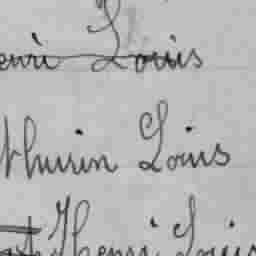 enri Louis
thurin Louis
Henri Louis